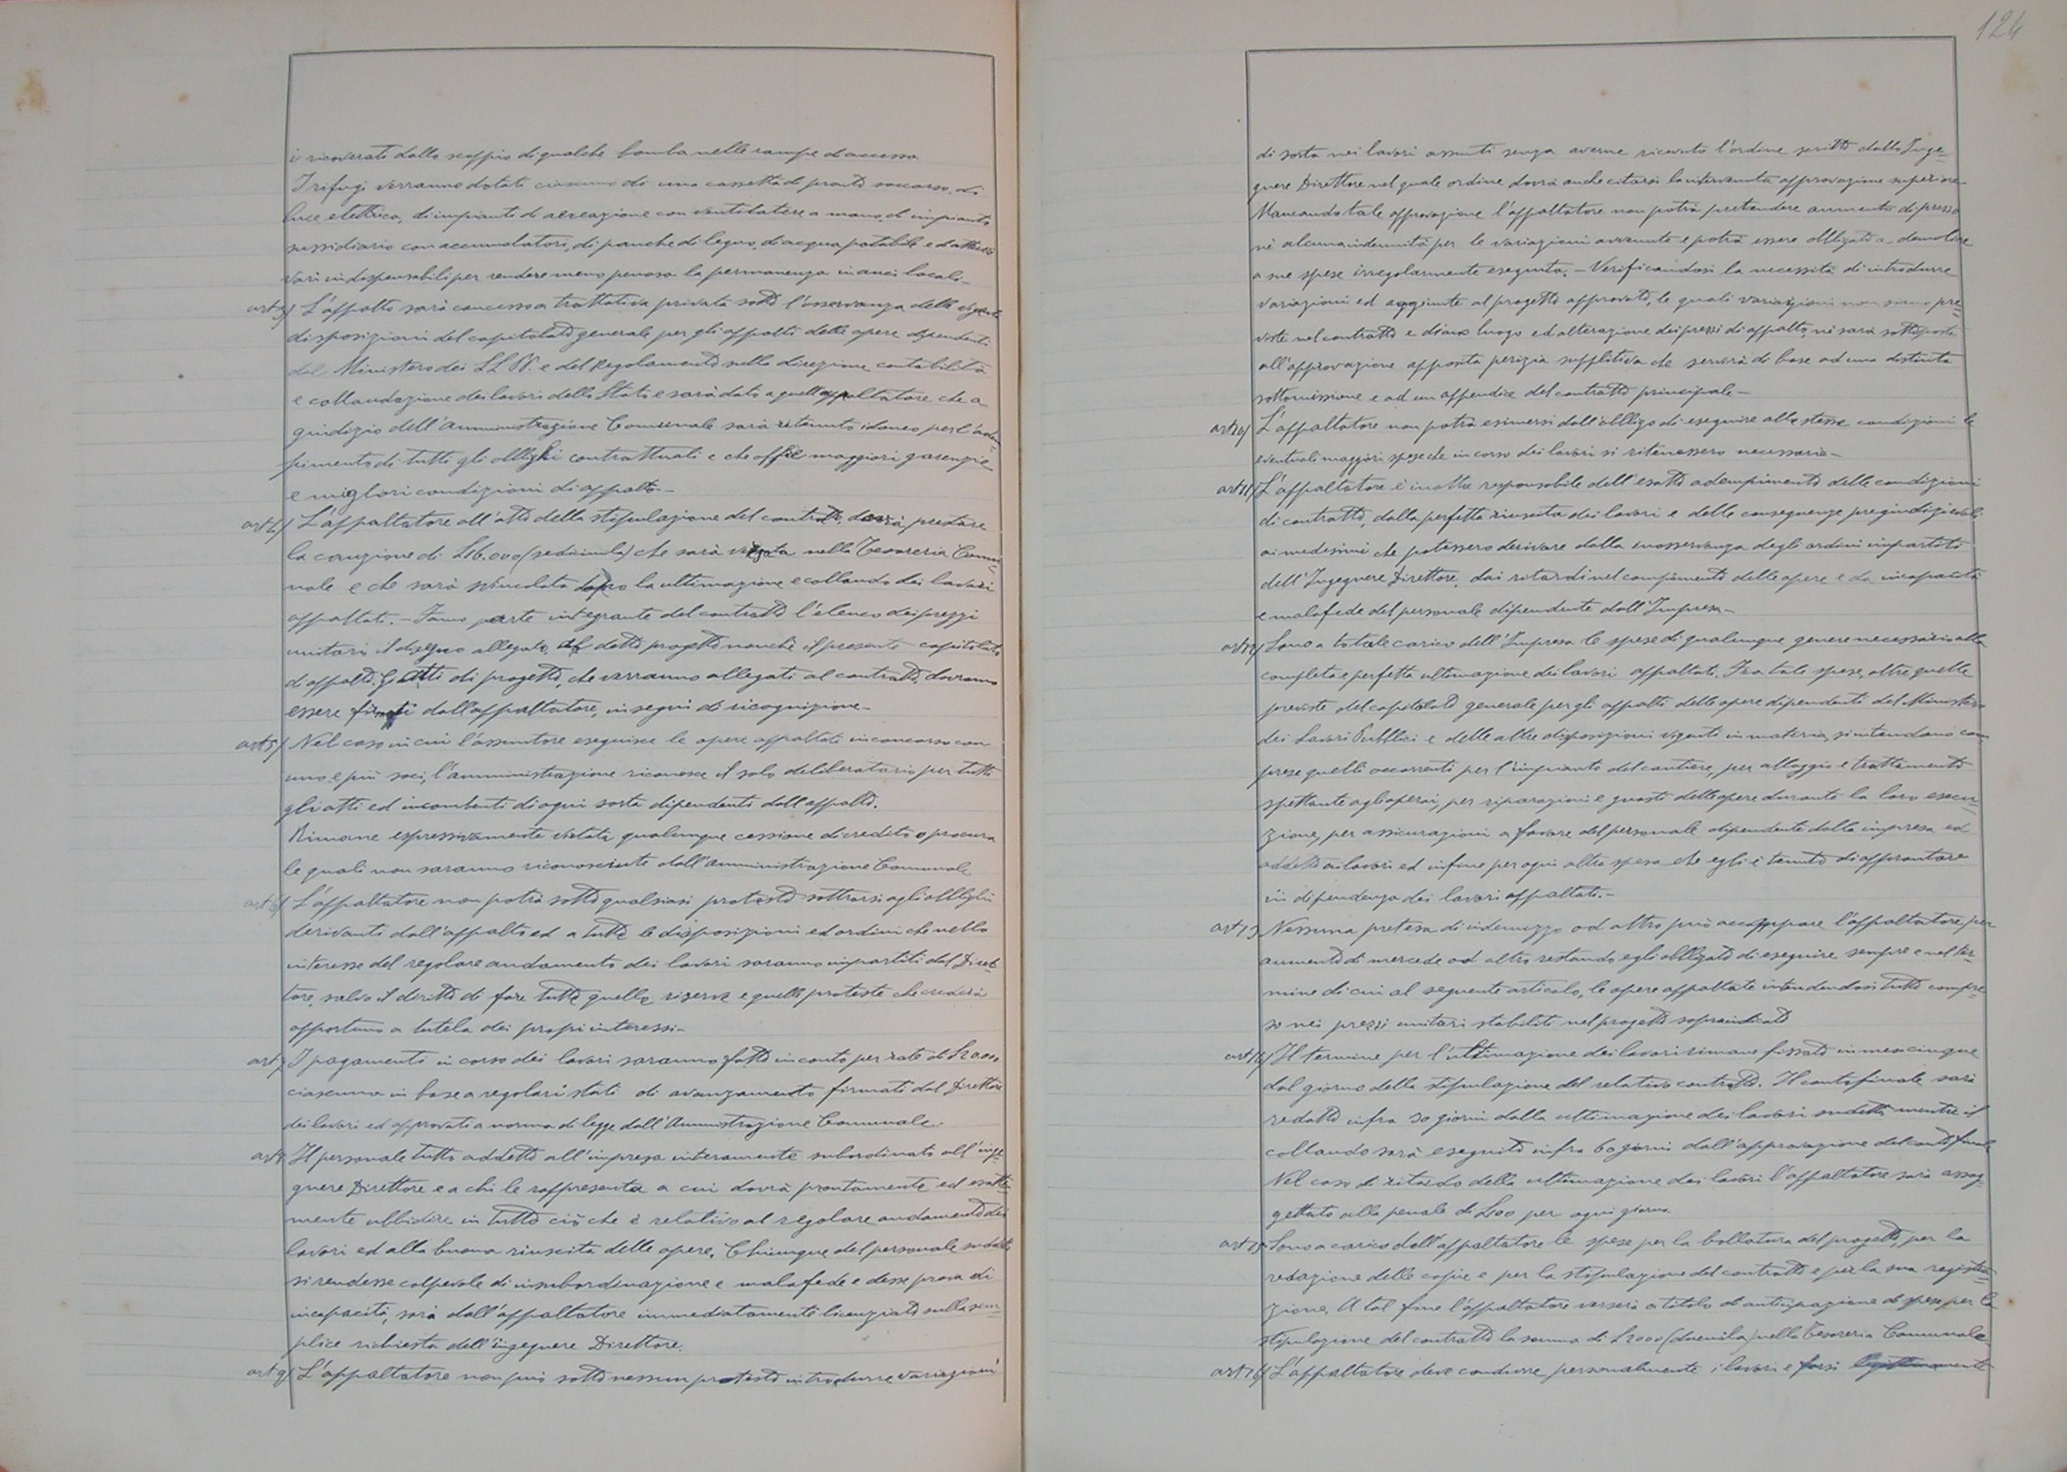 i ricoverati dallo scoppio di qualche bomba nelle rampe d'accesso
I rifugi verranno dotati ciascuno di una cassetta di pronto soccorso, di
luce elettrica, di impianto di aereazione con ventilatore a mano di impianto
sussidiario con accumulatori, di panche di legno, di acqua potabile e d'attrezzi
vari indispensabili per rendere meno penosa la permanenza in anci locali.-
art 3/ L'appalto sarà concesso a trattativa privata sotto l'osservanza delle vigenti
disposizioni del capitolato generale per gli appalti delle opere dipendenti
dal Ministero dei LL.PP. e del Regolamento sulla direzione contabilità
e collaudazione dei lavori dello Stato e sarà dato a quell'appaltatore che a
giudizio dell'Amministrazione Comunale sarà ritenuto idoneo per l'adem=
pimento di tutti gli obblighi contrattuali e che offre maggiori garenzie
e migliori condizioni di appalto.-
art 4/ L'appaltatore all'atto della stipulazione del contratto, dovrà prestare
la cauzione di L.16.000 (sedicimila) che sarà versata nella Tesoreria Comu=
nale e che sarà svincolata dopo la ultimazione e collaudo dei lavori
appaltati.- Fanno parte integrante del contratto l'elenco dei prezzi
unitari il disegno allegato del detto progetto nonchè il presente capitolato
di appalto. Gli atti di progetto, che verranno allegati al contratto, dovranno
essere firmati dall'appaltatore, in segno di ricognizione.-
art 5/ Nel caso in cui l'assuntore eseguisce le opere appaltate in concorso con
uno e più soci, l'amministrazione riconosce il solo deliberatario per tutti
gli atti ed incombenti di ogni sorta dipendenti dall'appalto.
Rimane espressivamente vietata qualunque cessione di credito o procura
le quali non saranno riconosciute dall'amministrazione Comunale
art 6/ L'appaltatore non potrà sotto qualsiasi pretesto sottrarsi agli obblighi
derivanti dall'appalto ed a tutte le disposizioni ed ordini che nello
interesse del regolare andamento dei lavori saranno impartiti dal Diret=
tore, salvo il diritto di fare tutte quelle riserve e quelle proteste che crederà
opportuno a tutela dei propri interessi.-
art 7/ I pagamenti in corso dei lavori saranno fatti in conto per rate di
ciascuna in base a regolari stati di avanzamento firmati dal Direttore
dei lavori ed approvati a norma di legge dall'Amministrazione Comunale.
art 8/ Il personale tutto addetto all'impresa interamente subordinato all'inge=
gnere Direttore e a chi le rappresenta a cui dovrà prontamente ed esatta=
mente ubbidire in tutto ciò che è relativo al regolare andamento dei
lavori ed alla buona riuscita delle opere. Chiunque del personale suddetto
si rendesse colpevole di insubordinazione e malafede e desse prova di
incapacità, sarà dall'appaltatore immediatamente licenziato sulla sem=
plice richiesta dell'ingegnere Direttore.
art 9/ L'appaltatore non può sotto nessun pretesto introdurre variazioni
124
di sorta nei lavori assunti senza averne ricevuto l'ordine scritto dallo Inge=
gnere Direttore nel quale ordine dovrà anche citarsi la intervenuta approvazione superiore
Mancando tale approvazione l'appaltatore non potrà pretendere aumento di prezzo
nè alcuna indennità per le variazioni avvenute e potrà essere obbligato a demolire
a sue spese irregolarmente eseguito.- Verificandosi la necessità di introdurre
variazioni ed aggiunte al progetto approvato, le quali variazioni non siano pre=
viste nel contratto e diano luogo ed alterazione dei prezzi di appalto, nè sarà sottoposta
all'approvazione apposita perizia suppletiva che servirà di base ad una distinta
sottomissione e ad un appendice del contratto principale.-
art 10/ L'appaltatore non potrà esimersi dall'obbligo di eseguire alle stesse condizioni le
eventuali maggiori spese che in corso dei lavori si ritenessero necessarie.-
art 11/ L'appaltatore è inoltre responsabile dell'esatto adempimento delle condizioni
di contratto, dalla perfetta riuscita dei lavori e delle conseguenze pregiudizievoli
ai medesimi che potessero derivare dalla inosservanza degli ordini impartiti
dell'Ingegnere Direttore, dai ritardi nel compimento delle opere e da incapacità
e malafede del personale dipendente dall'Impresa.-
art 12/ Sono a totale carico dell'Impresa le spese di qualunque genere necessarie alla
completa e perfetta ultimazione dei lavori appaltati. Fra tali spese, oltre quelle
previste del capitolato generale per gli appalti delle opere dipendenti del Ministero
dei Lavori Pubblici e delle altre disposizioni vigenti in materia, si intendono com=
prese quelli occorrenti per l'impianto del cantiere, per alloggio e trattamento
spettante agli operai, per riparazioni e guasti delle opere durante la loro esecu=
zione, per assicurazioni a favore del personale dipendente dalla impresa ed
addetto ai lavori ed infine per ogni altra spesa che egli è tenuto di affrontare
in dipendenza dei lavori appaltati.-
art 13 Nessuna pretesa di indennizzo od altro può accampare l'appaltatore per
aumento di mercede od altro restando egli obbligato di eseguire sempre e nel ter=
mine di cui al seguente articolo, le opere appaltate intendendosi tutto compre=
so nei prezzi unitari stabiliti nel progetto sopraindicato
art 14/ Il termine per l'ultimazione dei lavori rimane fissato in mesi cinque
dal giorno della stipulazione del relativo contratto. Il conto finale sarà
redatto infra 30 giorni dalla ultimazione dei lavori sudetti mentre il
collaudo sarà eseguito infra 60 giorni dall'approvazione del conto finale
Nel caso di ritardo della ultimazione dei lavori l'appaltatore sarà assog=
gettato alla penale di L.100 per ogni giorno.
art 15 Sono a carico dell'appaltatore le spese per la bollatura del progetto, per la
redazione delle copie e per la stipulazione del contratto e per la sua registra=
zione. A tal fine l'appaltatore verserà a titolo di anticipazione di spese per la
stipulazione del contratto la somma di L.2000 (duemila) nella Tesoreria Comunale
art 16/ L'appaltatore deve condurre personalmente i lavori e farsi legittimamente